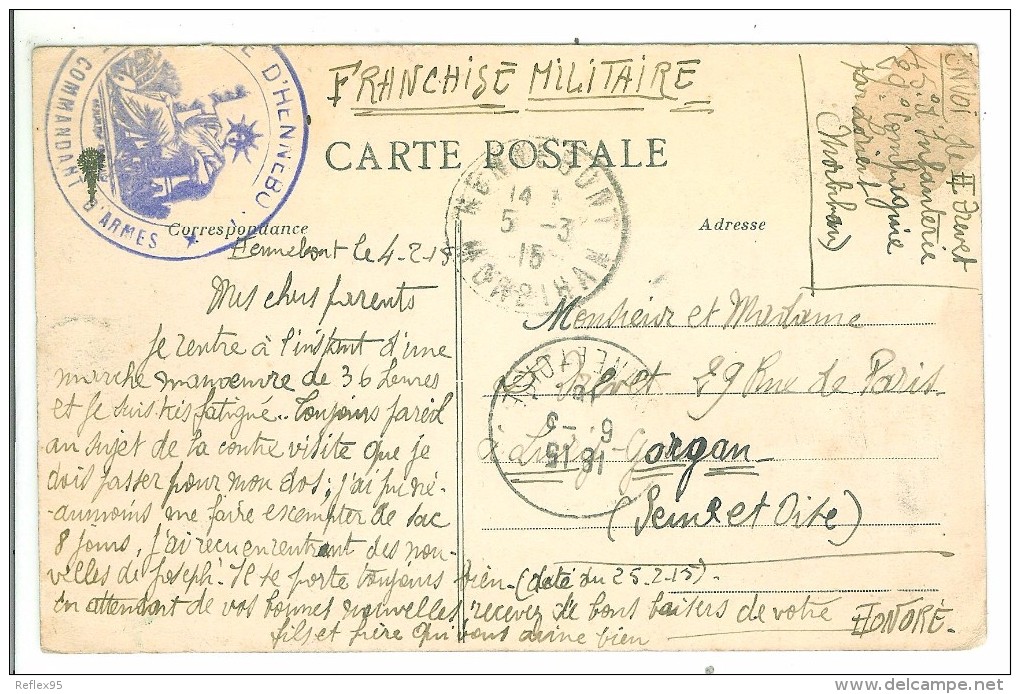 FRANCHISE MILITAIRE
CARTE POSTALE
D'HENNEBO
COMMANDANT D'ARMES
HENNEBONT
14
5 -3
15
MORBIHAN
Envoi de H Prevet
Infanterie
29° Compagnie
par Lorient
(Morbihan)
Correspondance
Adresse
Hennebont le 4-2-15
Mes chers parents
Je rentre à l'instant d'une
marche manoeuvre de 36 heures
et je suis très fatigué.. Toujours pareil
au sujet de la contre visite que je
dois passer pour mon dos; j'ai pu né-
-anmoins me faire exempter de sac
8 jours, j'ai recu en rentrant des nou-
velles de Joseph. Il se porte toujours bien - (daté du 25.2.15).
En attendant de vos bonnes nouvelles, recevez de bons baisers de votre HONORÉ.
fils et frère qui vous aime bien
Monsieur et Madame
Prevet 29 Rue de Paris
à Livry-Gargan
(Seine et Oise)
6 -3
15
Reflex95
delcampe.net